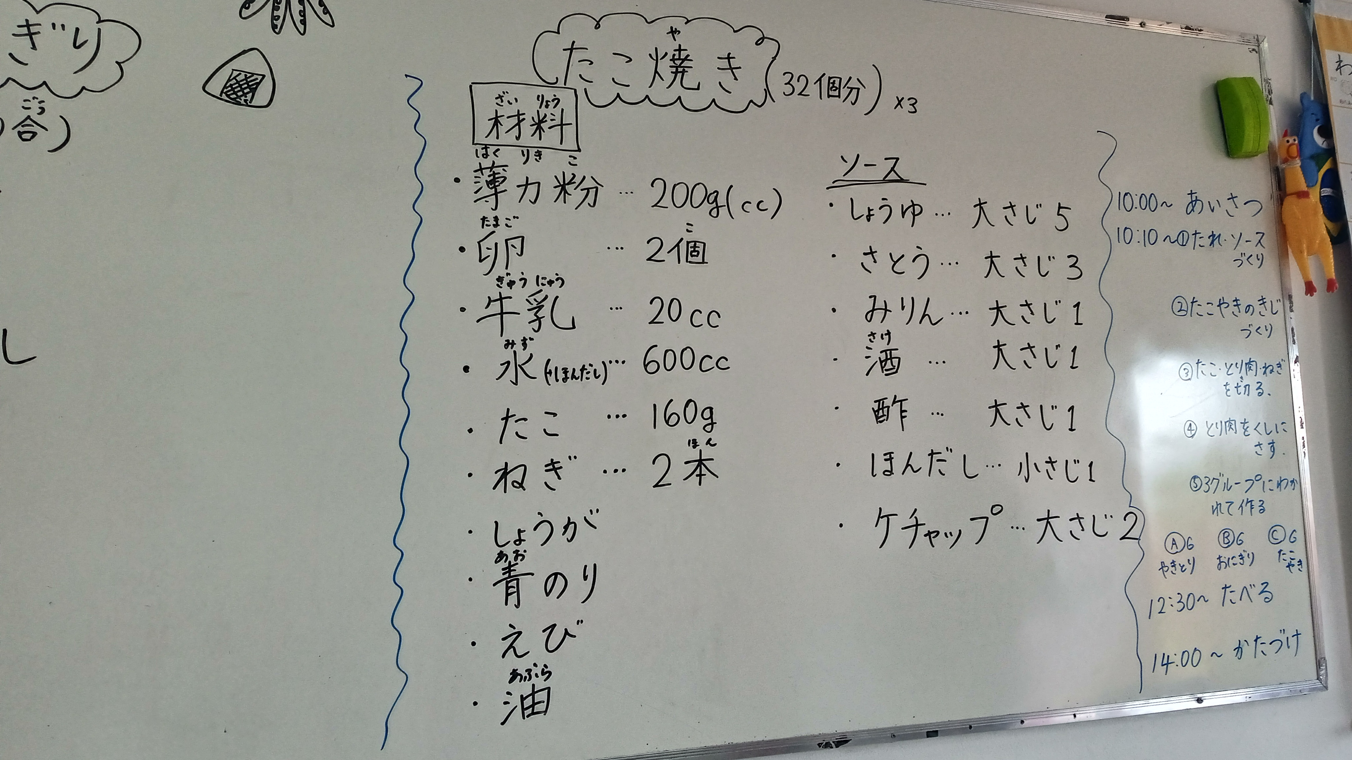 ぎり
ごう
合)
し
や
たこ焼き (32個分) ×3
ざい りょう
材料
はく りき こ
・薄力粉 … 200g(cc)
たまご こ
・卵 … 2個
ぎゅうにゅう
・牛乳 … 20cc
みず
・水(+ほんだし)… 600cc
・たこ … 160g
ほん
・ねぎ … 2本
・しょうが
あお
・青のり
・えび
あぶら
・油
ソース
・しょうゆ … 大さじ5
・さとう … 大さじ3
・みりん … 大さじ1
さけ
・酒 … 大さじ1
・酢 … 大さじ1
・ほんだし … 小さじ1
・ケチャップ … 大さじ2
10:00~ あいさつ
10:10~①たれ・ソース
づくり
②たこやきのきじ
づくり
③たこ・とり肉・ねぎ
を切る.
④とり肉をくしに
さす.
⑤3グループにわか
れて作る
Ⓐ6 Ⓑ6 Ⓒ6
やきとり おにぎり たこ
やき
12:30~ たべる
14:00~ かたづけ
わ